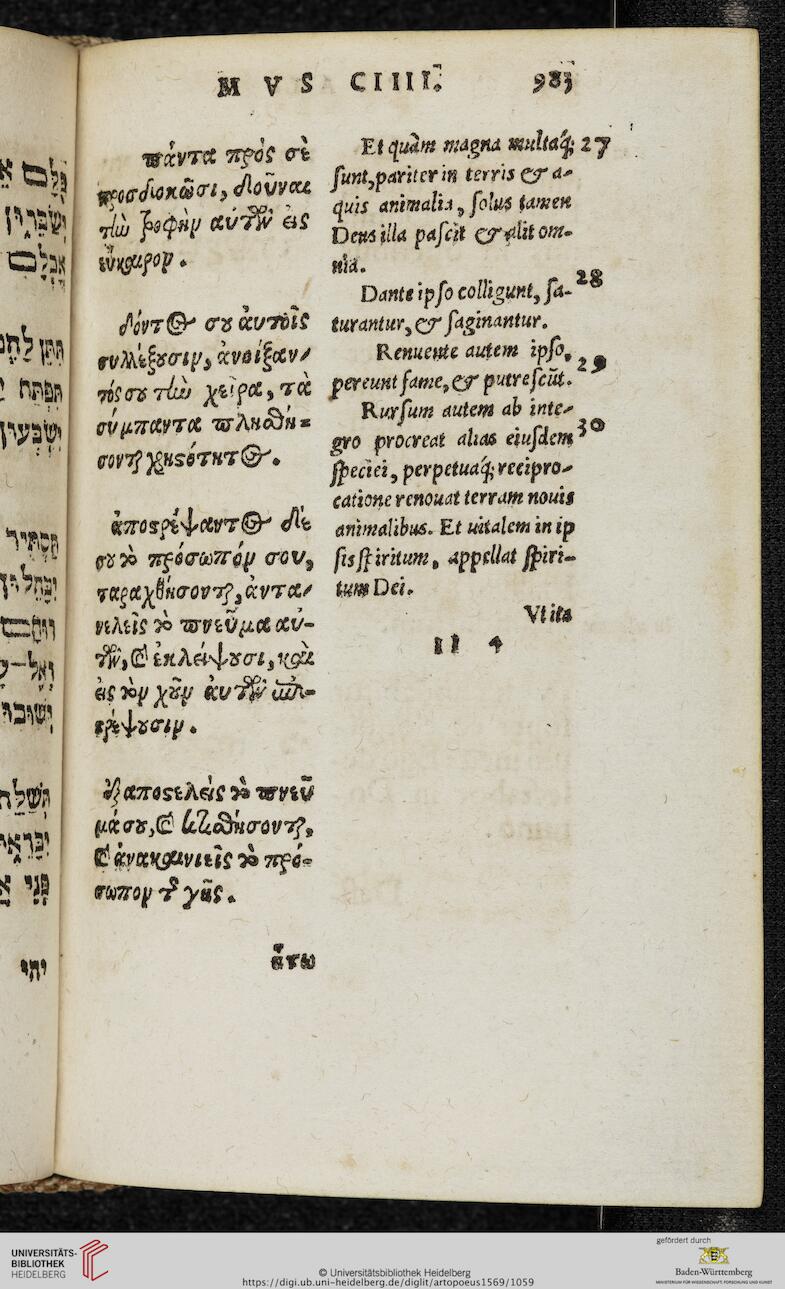 MVS CIIII. 983
πάντα πρὸς σὲ
προσδοκῶσι, δοῦναι
τὴν τροφὴν αὐτῶν εἰς
εὔκαιρον.
δόντος σου αὐτοῖς
συλλέξουσιν, ἀνοίξαν-
τός σου τὴν χεῖρα, τὰ
σύμπαντα πλησθή=
σονται χρηστότητος.
ἀποστρέψαντος δέ
σου τὸ πρόσωπόν σου,
ταραχθήσονται, ἀντα-
νελεῖς τὸ πνεῦμα αὐ-
τῶν, καὶ ἐκλείψουσι, καὶ
εἰς τὸν χοῦν αὐτῶν ἐπι-
στρέψουσιν.
ἐξαποστελεῖς τὸ πνεῦ
μά σου, καὶ κτισθήσονται,
καὶ ἀνακαινιεῖς τὸ πρό-
σωπον τῆς γῆς.
ἤτω
Et quàm magna multaq́; 27
sunt, pariter in terris & a-
quis animalia, solus tamen
Deus illa pascit & alit om-
nia.
Dante ipso colligunt, sa- 28
turantur, & saginantur.
Renuente autem ipso, 29
pereunt fame, & putrescũt.
Rursum autem ab inte-
gro procreat alias eiusdem 30
speciei, perpetuaq́; recipro-
catione renouat terram nouis
animalibus. Et uitalem in ip
sis spiritum, appellat spiri-
tum Dei.
Vt ita
II 4
פָּנָיו
יהי
UNIVERSITÄTS-
BIBLIOTHEK
HEIDELBERG
© Universitätsbibliothek Heidelberg
https://digi.ub.uni-heidelberg.de/diglit/artopoeus1569/1059
gefördert durch
Baden-Württemberg
MINISTERIUM FÜR WISSENSCHAFT, FORSCHUNG UND KUNST